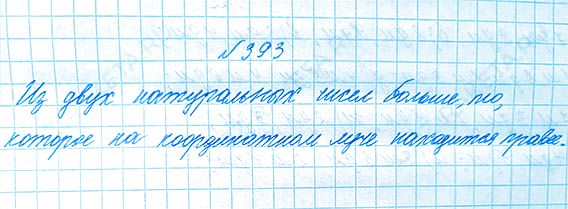 №393
Из двух натуральных чисел больше, то,
которое на координатном луче находится правее.